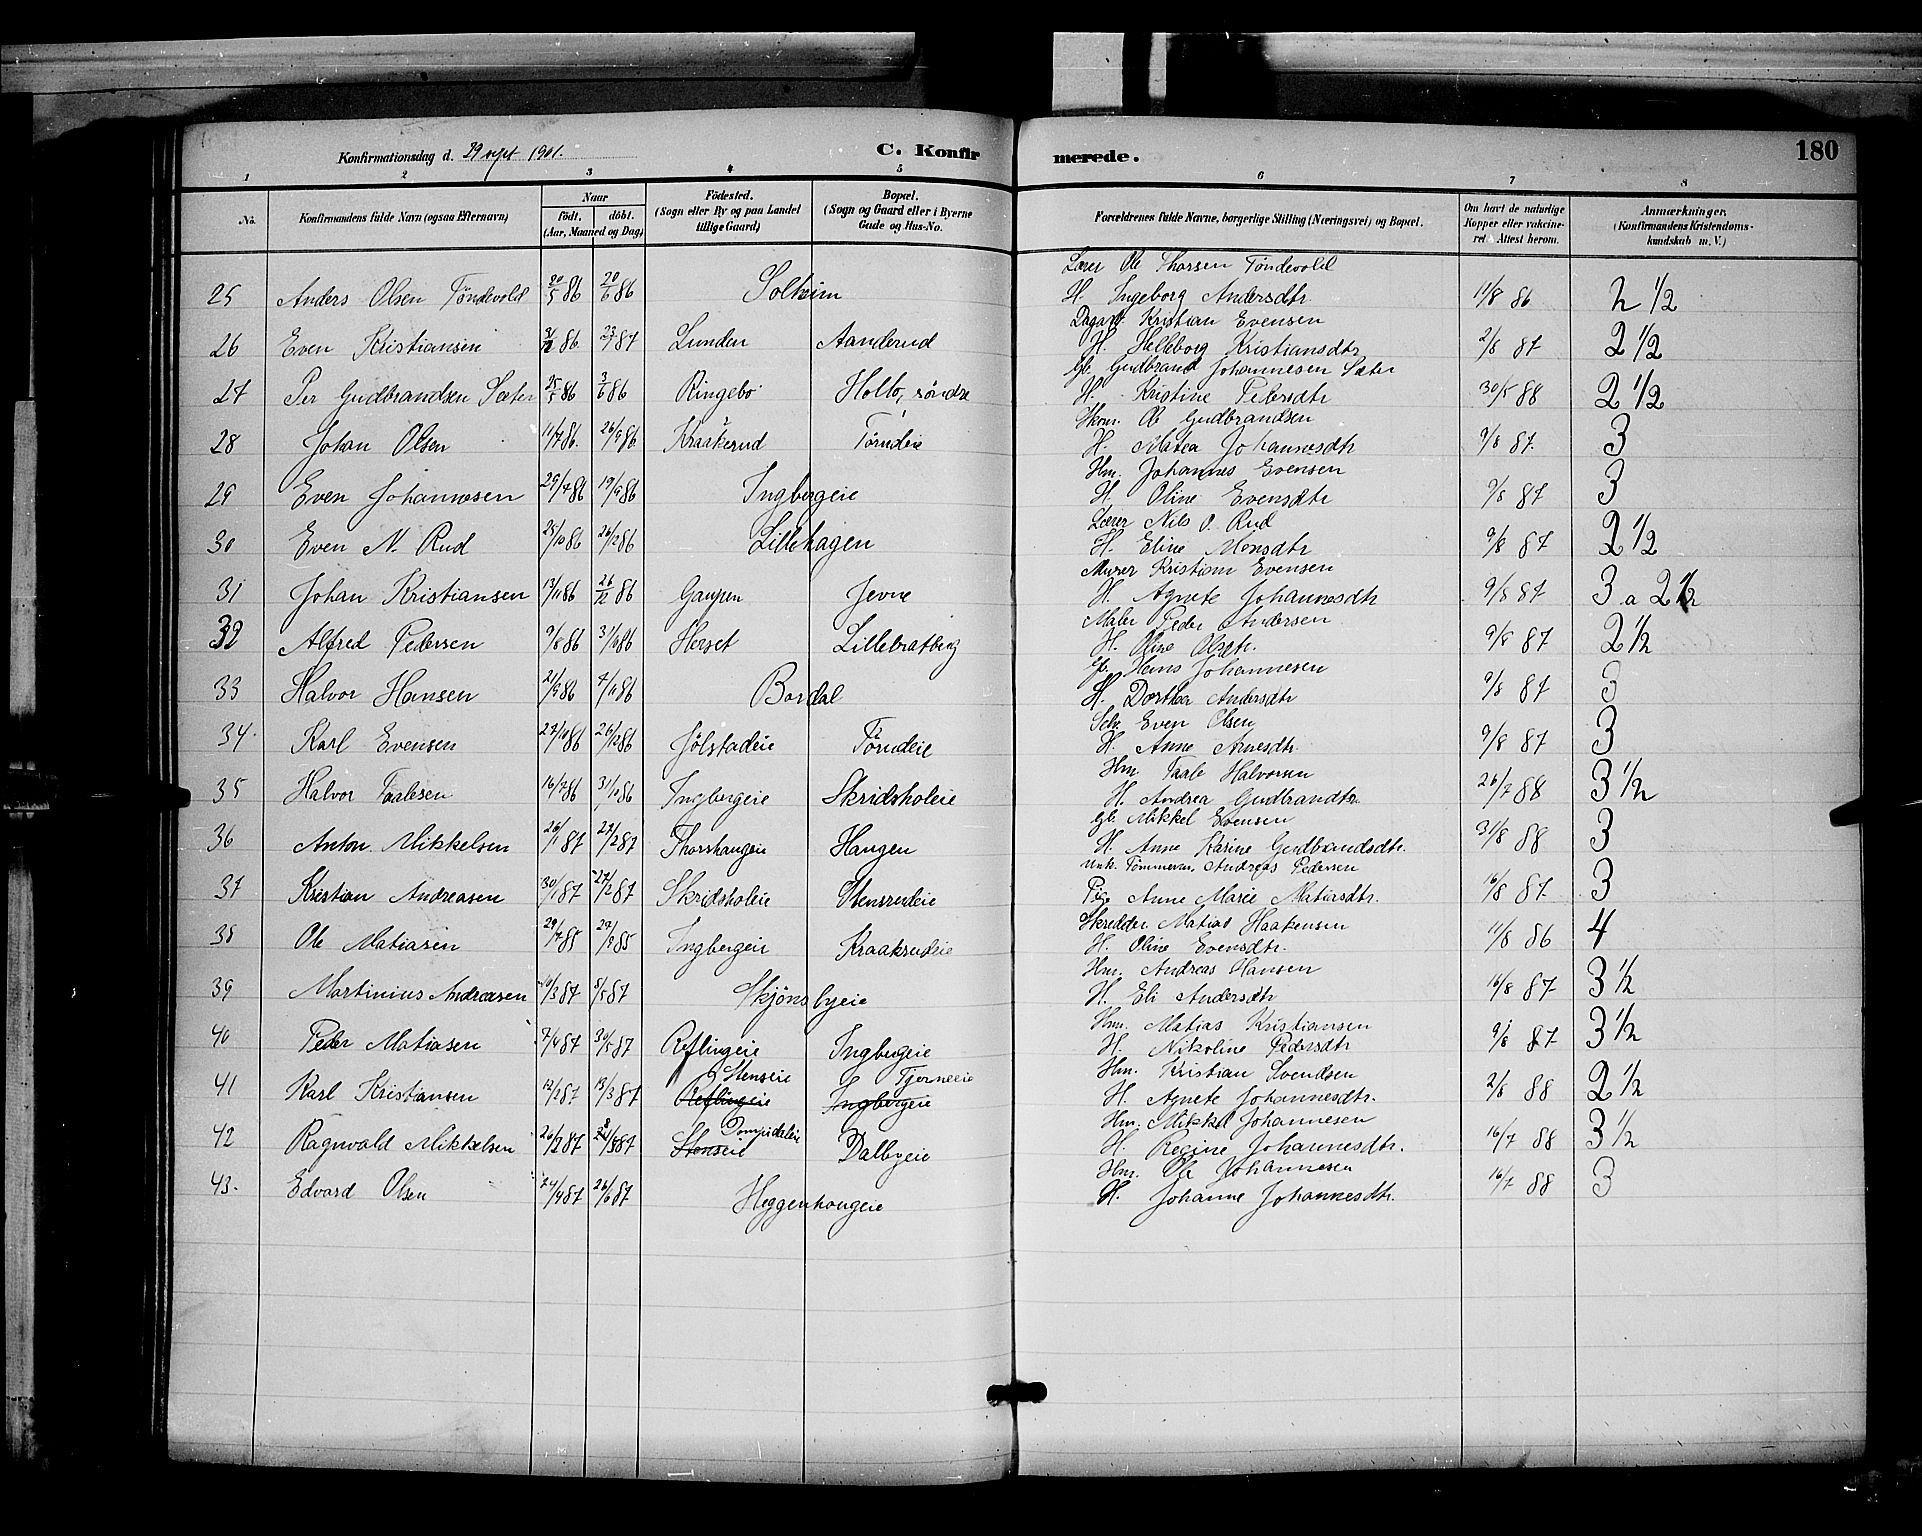 Konfirmationsdag d. 29 sept 1901. C. Konfirmerede. 180
1 2 3 4 5 6 7 8
No. Konfirmandens fulde Navn (ogsaa Efternavn) Naar födt. döbt. (Aar, Maaned og Dag) Födested. (Sogn eller By og paa Landet tillige Gaard) Bopæl. (Sogn og Gaard eller i Byerne Gade og Hus-No. Forældrenes fulde Navne, borgerlige Stilling (Næringsvei) og Bopæl. Om havt de naturlige Kopper eller vaccineret. Attest herom. Anmærkninger. (Konfirmandens Kristendomskundskab m. V.)
Lærer Ole Thorsen Tøndevold
25 Anders Olsen Tøndevold 20/5 86 20/6 86 Solheim H. Ingeborg Andersdtr 11/8 86 2 1/2
Dagarb. Kristian Evensen
26 Even Kristiansen 31/12 86 23/7 87 Lunden Aanderud H. Helleborg Kristiansdtr 2/8 87 2 1/2
Gb. Gudbrand Johannesen Sæter
27 Per Gudbrandsen Sæter 25/5 86 3/6 86 Ringebo Holto, søndre H. Kristine Pedersdtr 30/5 88 2 1/2
Skom. Ole Gudbrandsen
28 Johan Olsen 11/7 86. 26/9 86 Kraakerud Tørudeie H. Matea Johannesdtr 9/8 87. 3
Hm. Johannes Evensen
29 Even Johannesen 29/7 86 19/9 86 Ingbergeie H. Oline Evensdtr 9/8 87 3
Lærer Nils O. Rud
30 Even N. Rud 25/10 86 26/12 86 Lillehagen H. Eline Monsdtr 9/8 87 2 1/2
Murer Kristian Evensen
31 Johan Kristiansen 13/11 86 26/12 86 Gaupen Jevne H. Agnete Johannesdtr 9/8 87 3 a 2 1/2
Maler Peder Andersen
32 Alfred Pedersen 9/8 86 31/10 86 Herset Lillebratberg H. Oline Olsdtr. 9/8 87 2 1/2
Gb. Hans Johannesen
33 Halvor Hansen 2/9 86 7/11 86 Bordal H. Dorthea Andersdtr 9/8 87 3
Selv. Even Olsen
34. Karl Evensen 27/10 86 26/12 86 Jølstadeie Tørudeie H. Anne Arnesdtr 9/8 87 3
Hm. Taale Halvorsen
35 Halvor Taalesen 16/7 86 31/10 86 Ingbergeie Skridsholeie H. Andrea Gudbrandsdtr. 26/7 88 3 1/2
Gb. Mikkel Evensen
36 Anton Mikkelsen 26/1 87 27/2 87 Thorshaugeie Haugen H. Anne Karine Gudbrandsdtr. 31/8 88 3
Unk. Tømmerm. Andreas Pedersen
37 Kristian Andreasen 30/1 87 27/2 87 Skridsholeie Stensrudeie Pige Anne Marie Matiasdtr. 16/8 87. 3
Skredder Matias Haakensen
38 Ole Matiasen 29/7 85 27/9 85 Ingbergeie Kraakrudeie H. Oline Evensdtr. 11/8 86 4
Hm. Andreas Hansen
39 Martinius Andreasen 10/3 87 8/5 87 Skjønsbyeie H. Eli Andersdtr 16/8 87 3 1/2
Hm. Matias Kristiansen
40 Peder Matiasen 7/4 87 30/5 87 Reflingeie Ingbergeie H. Nikoline Pedersdtr 9/8 87 3 1/2
Stenseie Tjerneeie Hm. Kristian Svendsen
41 Karl Kristiansen 12/2 87 13/3 87 Reflingeie Ingbergeie H. Agnete Johannesdtr. 2/8 88 2 1/2
Hm. Mikkel Johannesen
42 Ragnvald Mikkelsen 26/2 87 Stenseie Dalbyeie H. Regine Johannesdtr. 16/7 88 3 1/2
Hm. Ole Johannesen
43. Edvard Olsen 24/4 87 26/6 87 Heggenhougeie H. Johanne Johannesdtr. 16/7 88 3